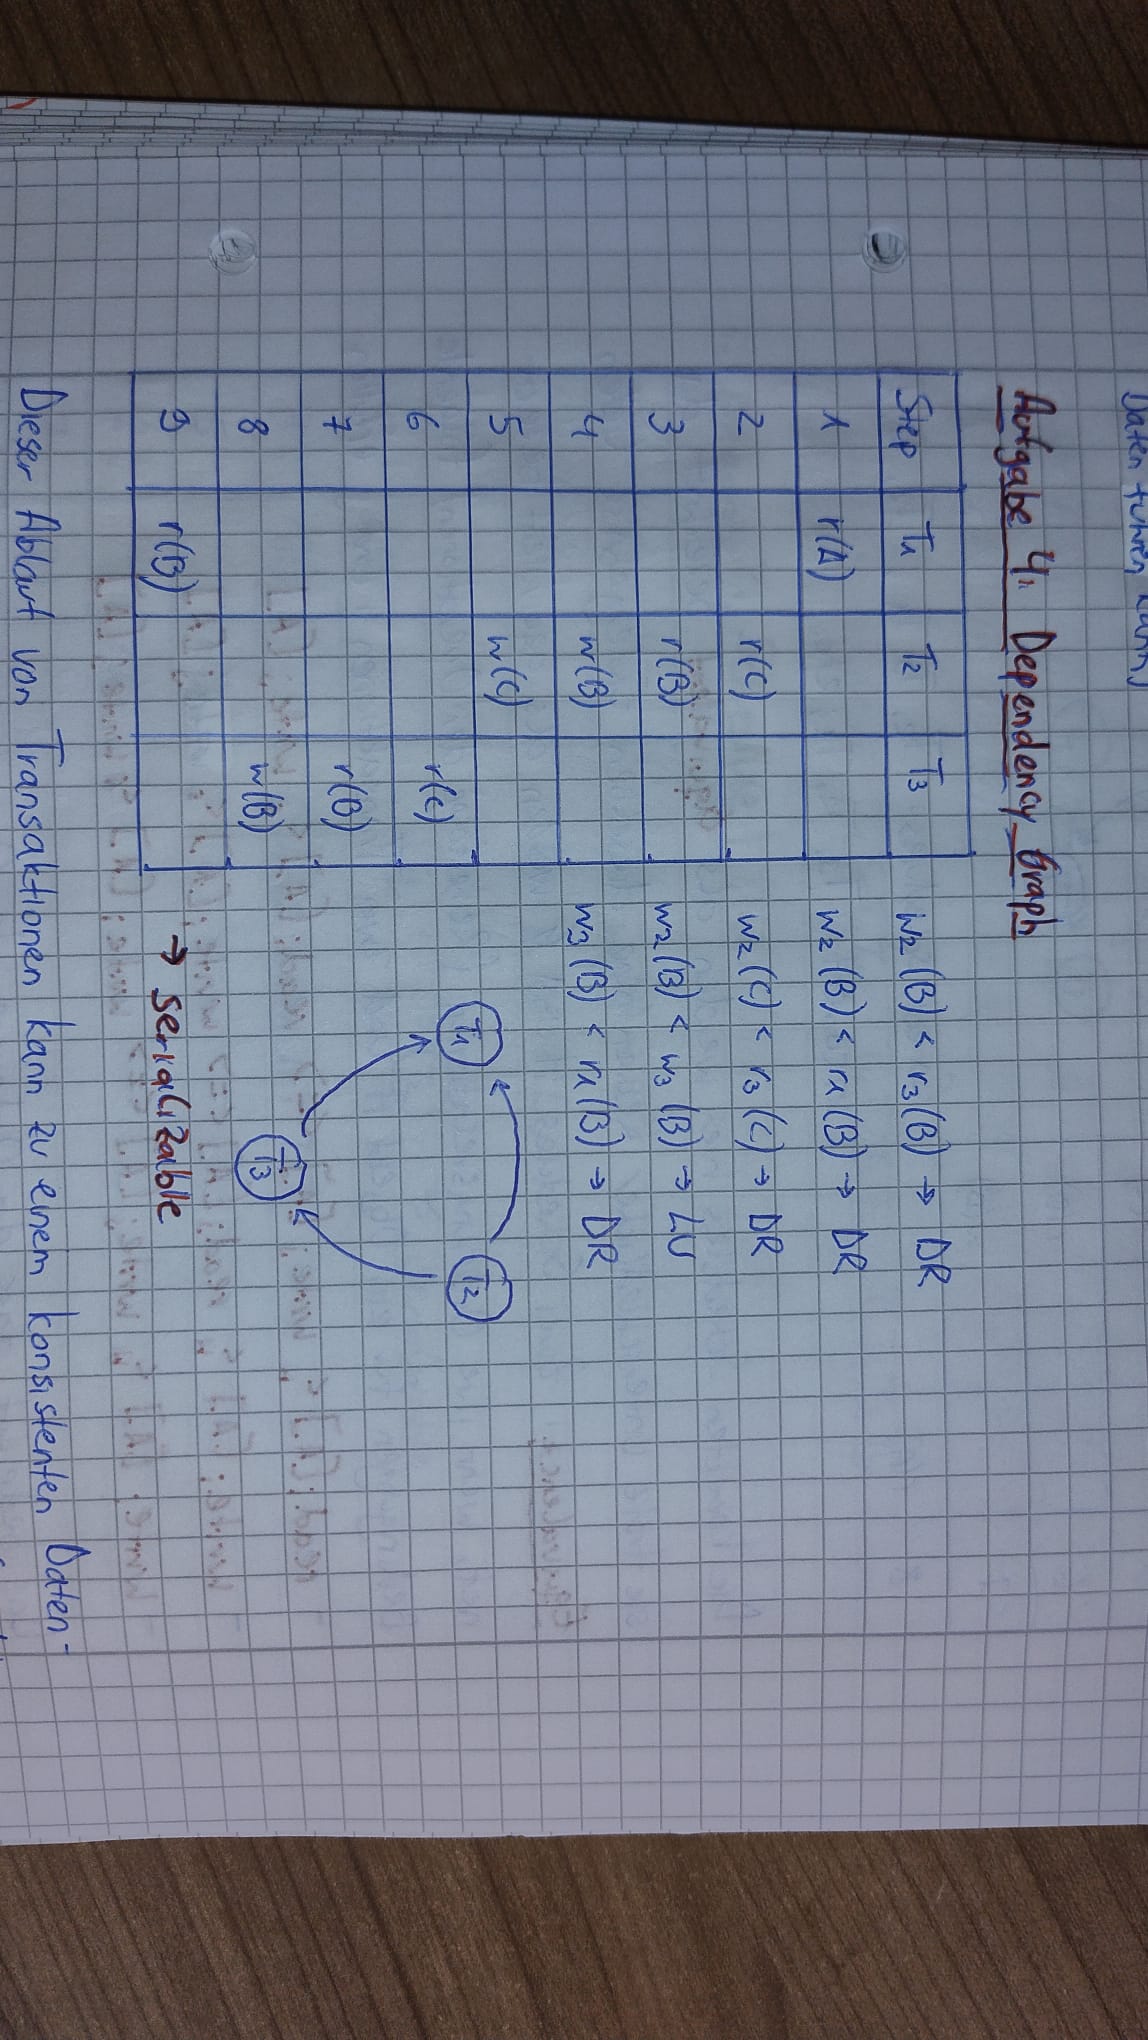 Daten führen kann)
Aufgabe 4: Dependency Graph
Step T1 T2 T3
1 r(A)
2 r(C)
3 r(B)
4 w(B)
5 w(C)
6 r(C)
7 r(B)
8 w(B)
9 r(B)
w2 (B) < r3 (B) → DR
w2 (B) < r1 (B) → DR
w2 (C) < r3 (C) → DR
w2 (B) < w3 (B) → LU
w3 (B) < r1 (B) → DR
T1 T2
T3
→ serializable
Dieser Ablauf von Transaktionen kann zu einem konsistenten Daten-